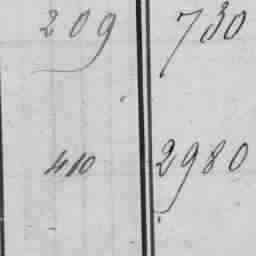 209 730
410 2980